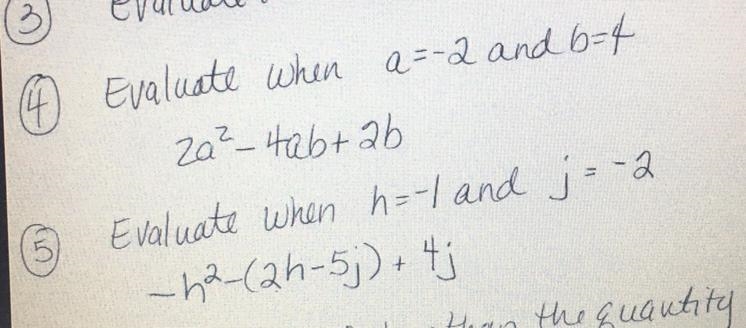 ③ Evaluate
④ Evaluate when a=-2 and b=4
2a²-4ab+2b
⑤ Evaluate when h=-1 and j=-2
-h²-(2h-5j)+4j
than the quantity